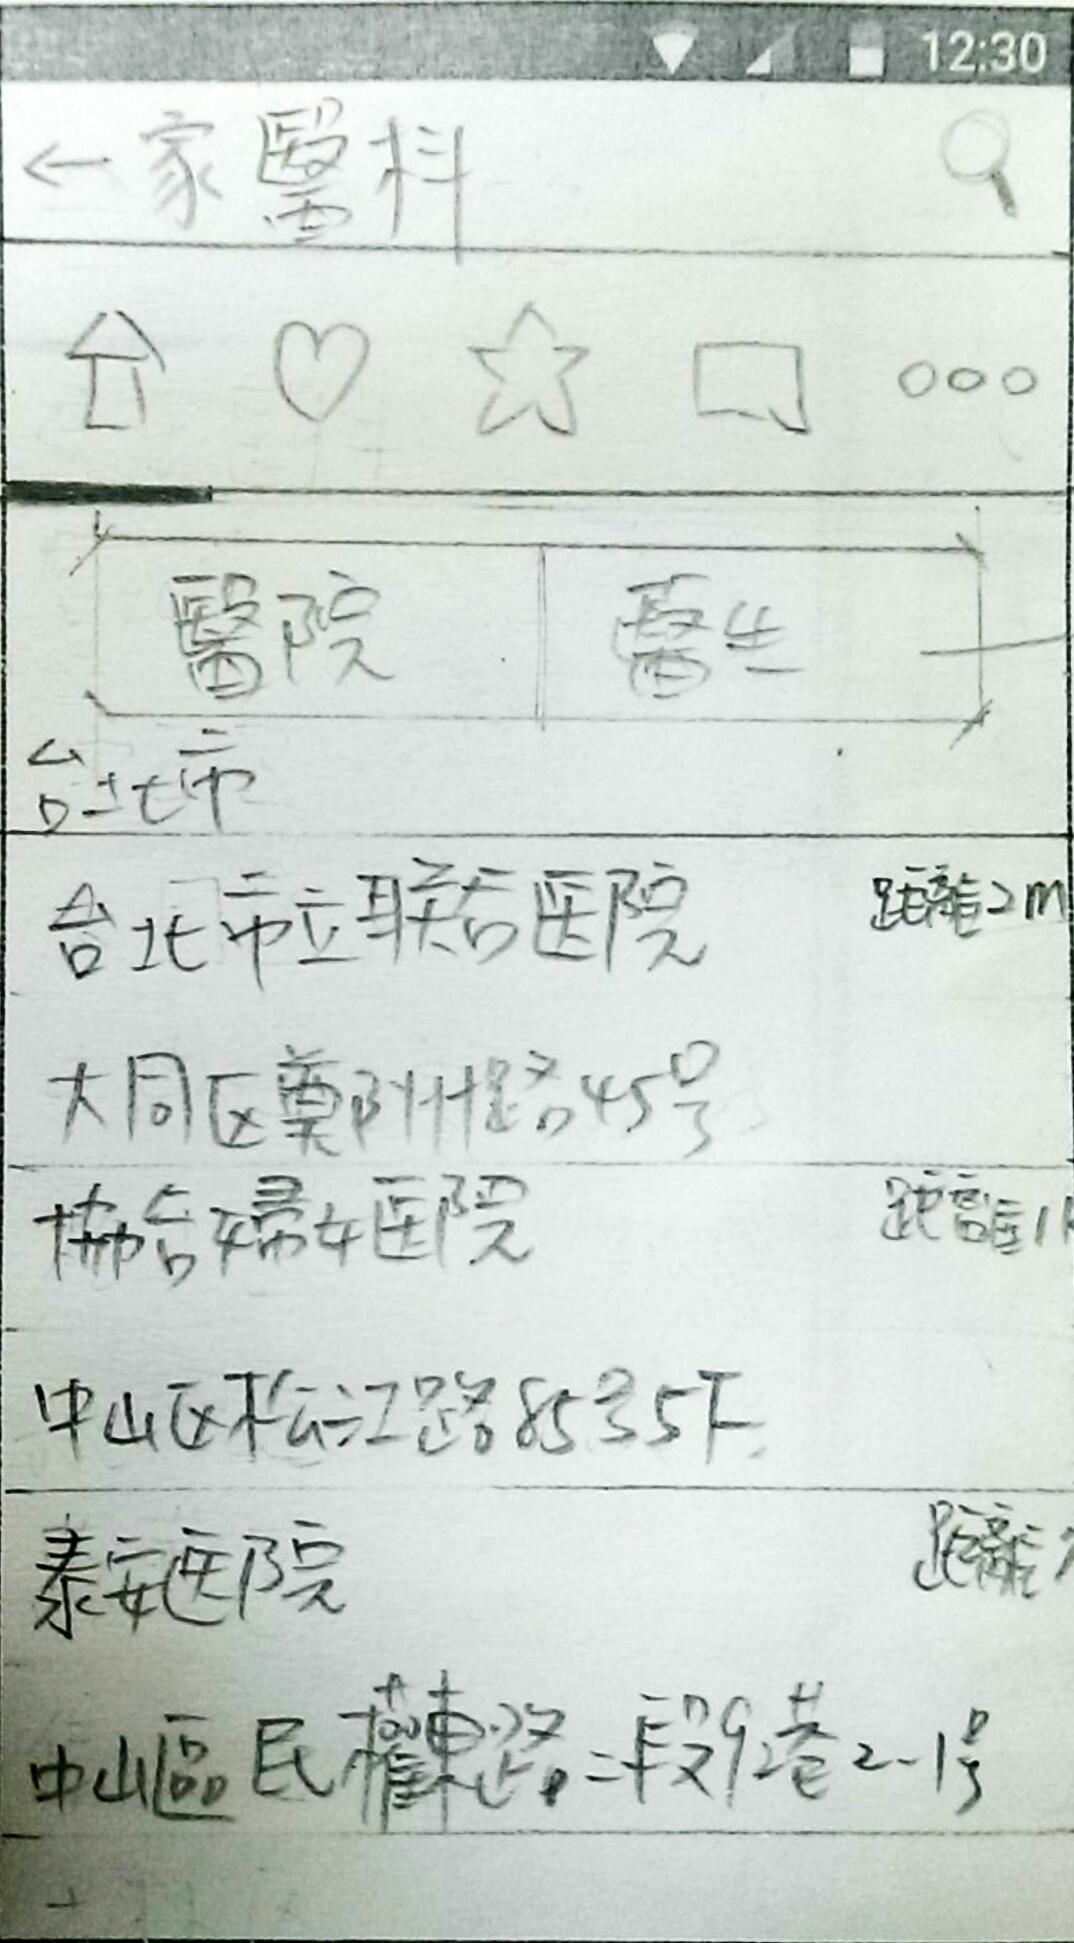 12:30
←家醫科
醫院 醫生
台北市
台北市立联合医院 距離2m
大同区鄭州路45号
協合婦女医院 距離1
中山区松江路85号5F
泰安医院 距離
中山區民權東路二段92巷2-1号